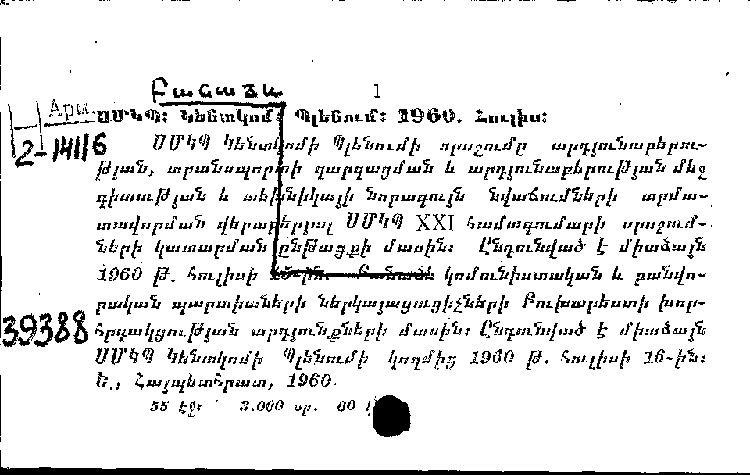 Բանաձև
1
Արա
ՍՄԿՊ: Կենտկոմ: Պլենում: 1960. Հուլիս:
2-14116
ՍՄԿՊ Կենտկոմի Պլենումի որոշումը արդյունաբերու-
թյան, տրանսպորտի զարգացման և արդյունաբերության մեջ
գիտության և տեխնիկայի նորագույն նվաճումների արմա-
տավորման վերաբերյալ ՍՄԿՊ XXI համագումարի որոշում-
ների կատարման ընթացքի մասին: Ընդունված է միաձայն
1960 թ. հուլիսի կոմունիստական և բանվո-
րական պարտիաների ներկայացուցիչների Բուխարեստի խոր-
39388
հրդակցության արդյունքների մասին: Ընդունված է միաձայն
ՍՄԿՊ Կենտկոմի Պլենումի կողմից 1960 թ. հուլիսի 16-ին:
Ե., Հայպետհրատ, 1960.
55 էջ: 3.000 օր. 60 կ